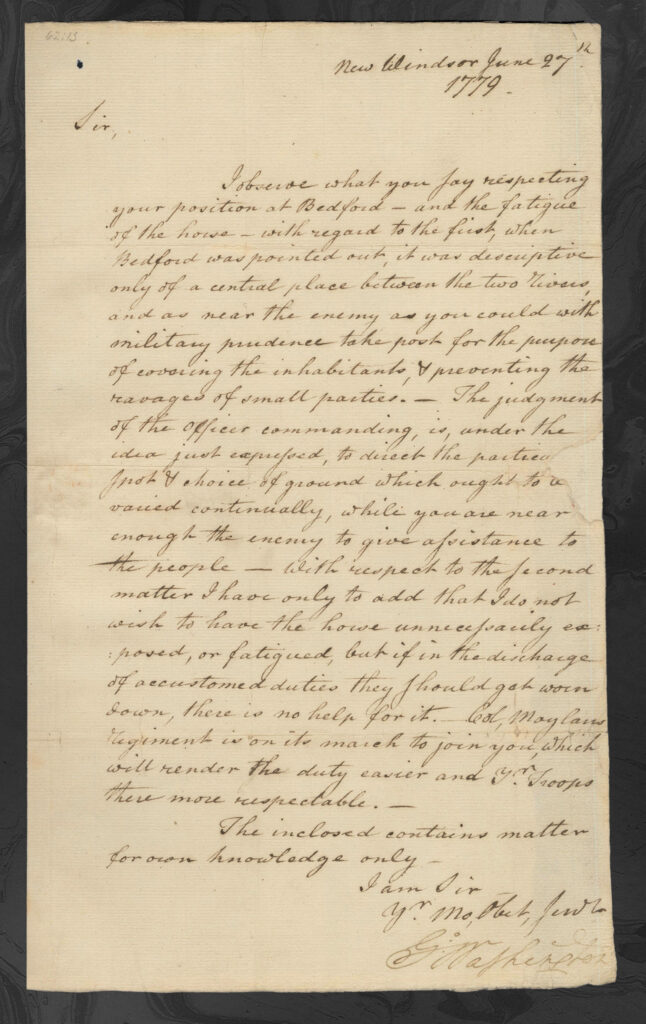 62.13
New Windsor June 27th
1779.
Sir,
I observe what you say respecting
your position at Bedford — and the fatigue
of the horse — with regard to the first, when
Bedford was pointed out, it was descriptive
only of a central place between the two rivers,
and as near the enemy as you could with
military prudence take post for the purpose
of covering the inhabitants, & preventing the
ravages of small parties. — The judgment
of the officer commanding, is, under the
idea just expressed, to direct the particu
spot & choice of ground which ought to
varied continually, while you are near
enough the enemy to give assistance to
the people — With respect to the second
matter I have only to add that I do not
wish to have the horse unnecessarily ex:
:posed, or fatigued, but if in the discharge
of accustomed duties they should get worn
down, there is no help for it. — Col, Moylans
regiment is on its march to join you, which
will render the duty easier and Yr. Troops
there more respectable. —
The inclosed contains matter
for own knowledge only —
I am Sir
Yr. Mo, Obet, Servt
Go. Washington